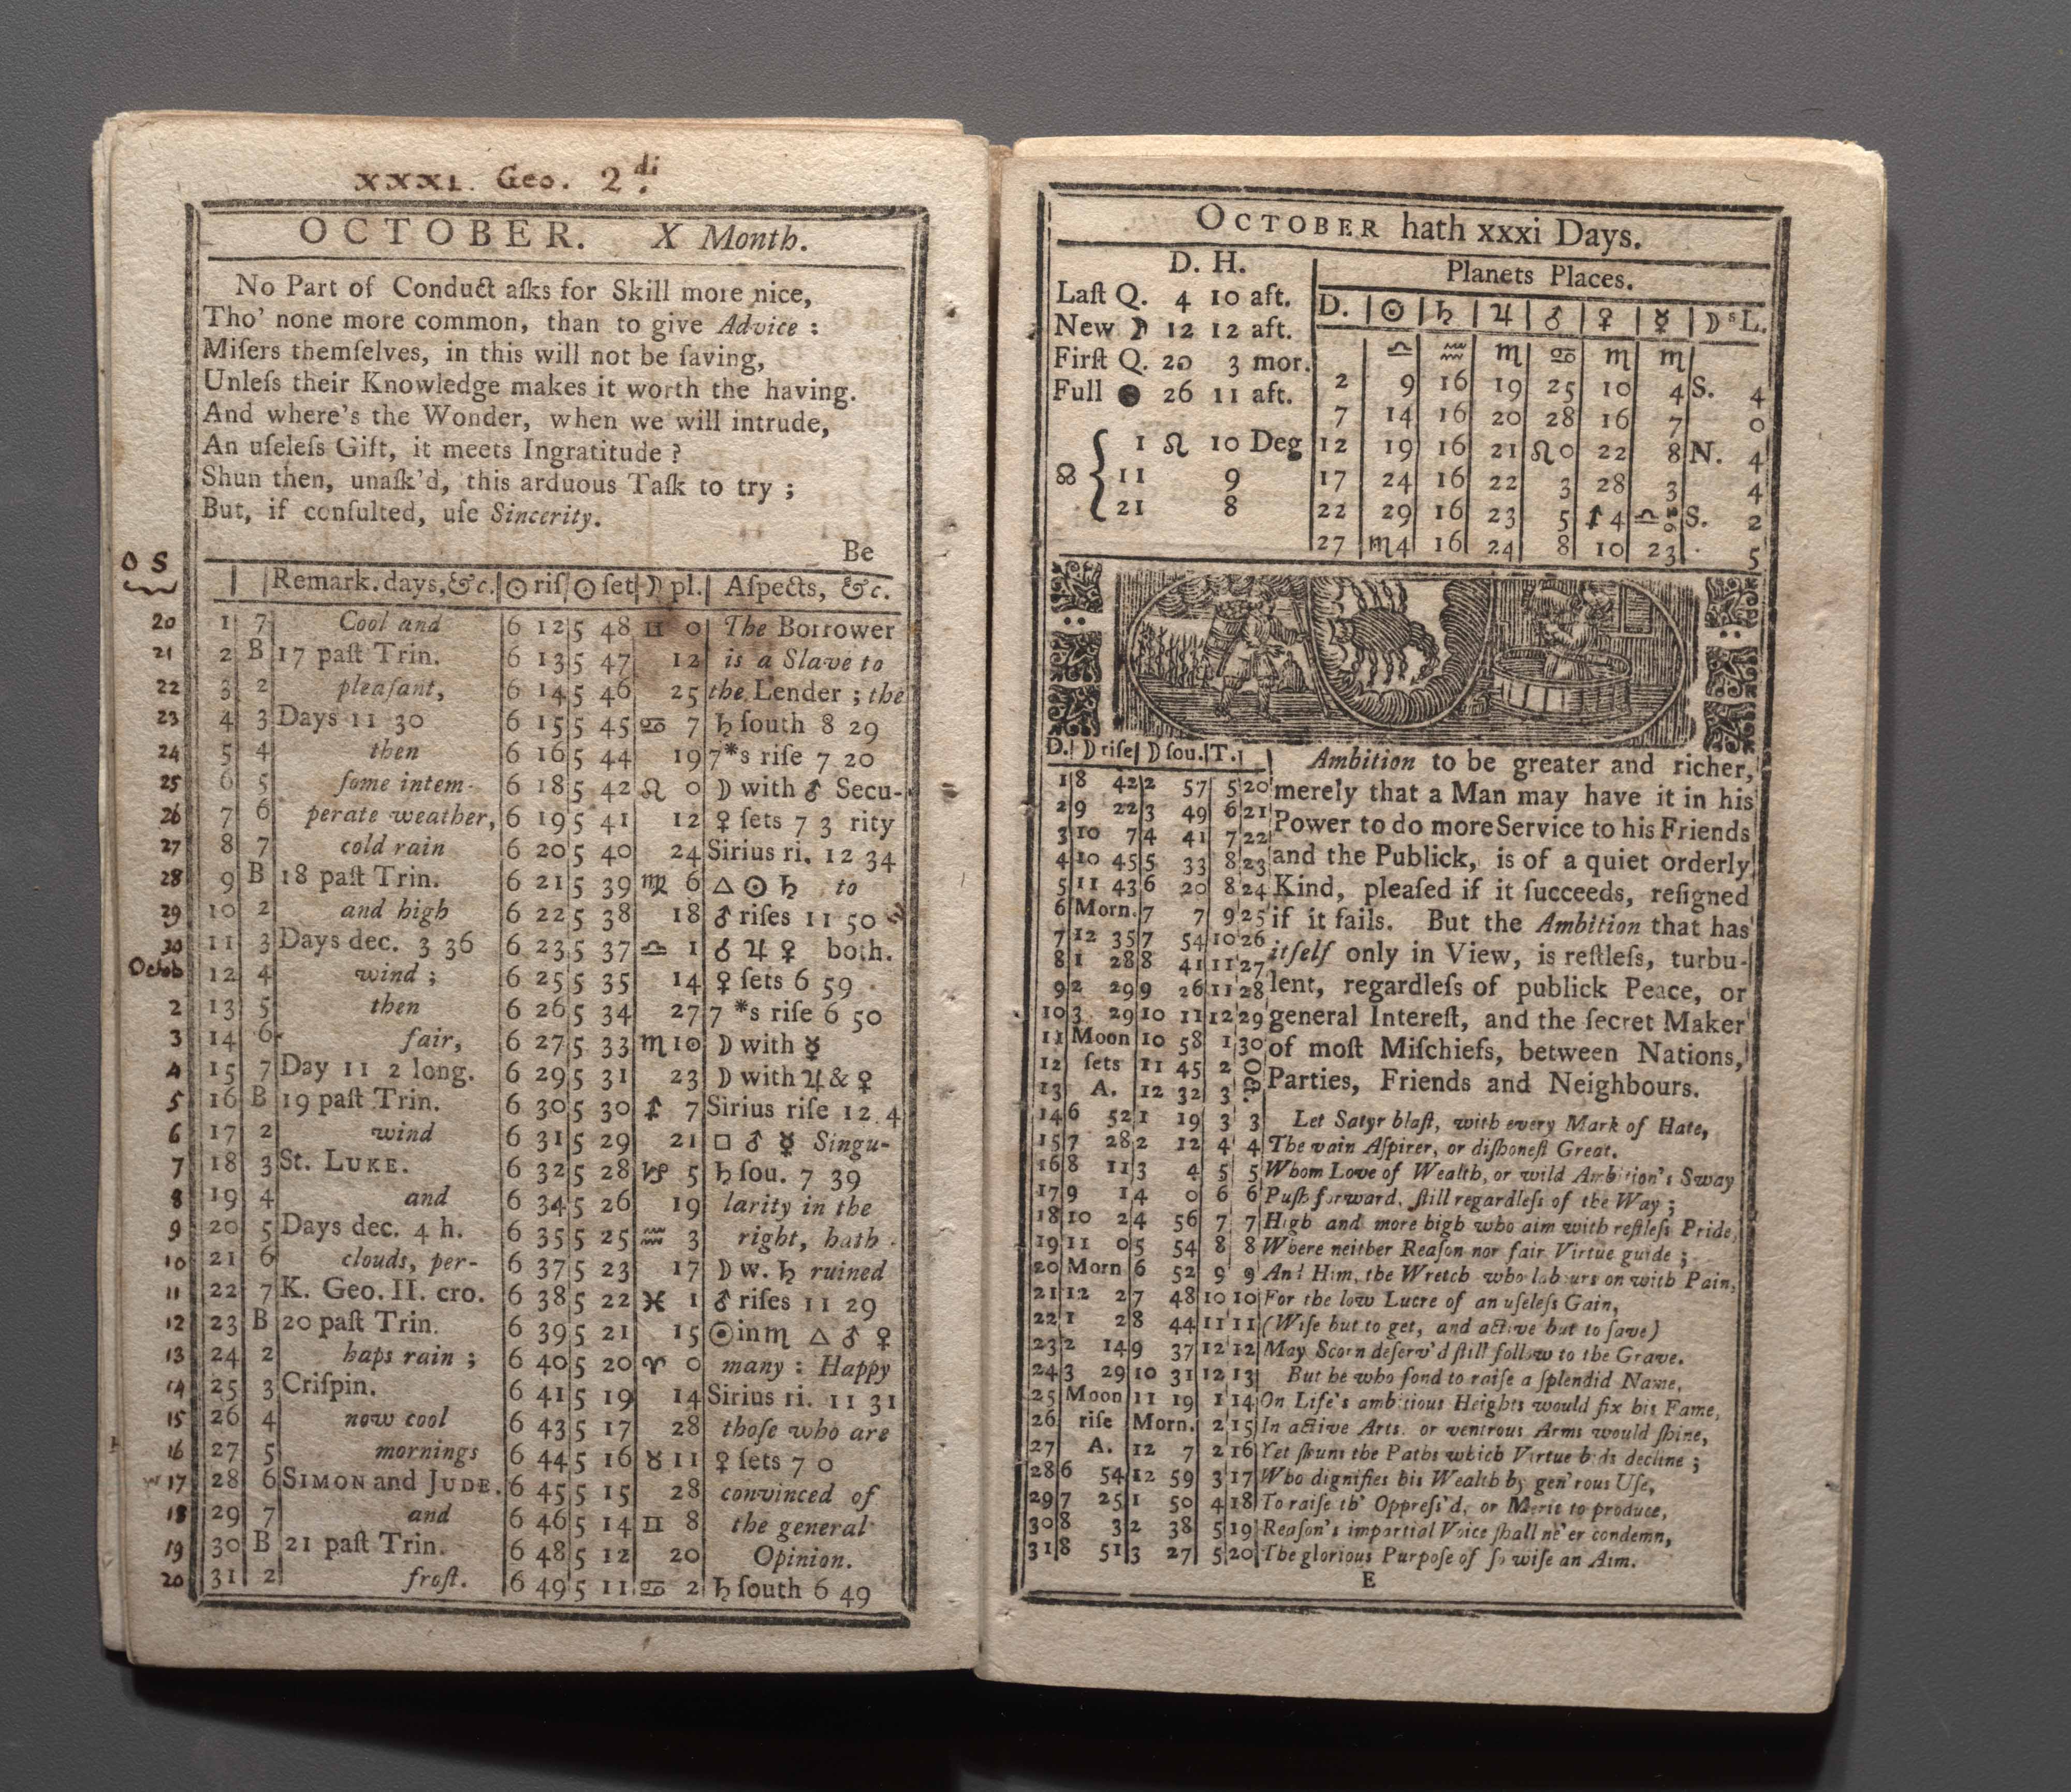 XXXI. Geo. 2.di
OCTOBER. X Month.
No Part of Conduct aſks for Skill more nice,
Tho' none more common, than to give Advice :
Miſers themſelves, in this will not be ſaving,
Unleſs their Knowledge makes it worth the having.
And where's the Wonder, when we will intrude,
An uſeleſs Gift, it meets Ingratitude ?
Shun then, unaſk'd, this arduous Taſk to try ;
But, if conſulted, uſe Sincerity.
Be
O S
Remark. days, &c. ☉ riſ ☉ ſet ☽ pl. Aſpects, &c.
20 1 7 Cool and 6 12 5 48 ♊ 0 The Borrower
21 2 B 17 paſt Trin. 6 13 5 47 12 is a Slave to
22 3 2 pleaſant, 6 14 5 46 25 the Lender ; the
23 4 3 Days 11 30 6 15 5 45 ♋ 7 ♄ ſouth 8 29
24 5 4 then 6 16 5 44 19 7*s riſe 7 20
25 6 5 ſome intem- 6 18 5 42 ♌ 0 ☽ with ♂ Secu-
26 7 6 perate weather, 6 19 5 41 12 ♀ ſets 7 3 rity
27 8 7 cold rain 6 20 5 40 24 Sirius ri. 12 34
28 9 B 18 paſt Trin. 6 21 5 39 ♍ 6 △ ☉ ♄ to
29 10 2 and high 6 22 5 38 18 ♂ riſes 11 50
30 11 3 Days dec. 3 36 6 23 5 37 ♎ 1 ☌ ♃ ♀ both.
Octob 12 4 wind ; 6 25 5 35 14 ♀ ſets 6 59
2 13 5 then 6 26 5 34 27 7 *s riſe 6 50
3 14 6 fair, 6 27 5 33 ♏ 10 ☽ with ☿
4 15 7 Day 11 2 long. 6 29 5 31 23 ☽ with ♃ & ♀
5 16 B 19 paſt Trin. 6 30 5 30 ♐ 7 Sirius riſe 12 4
6 17 2 wind 6 31 5 29 21 □ ♂ ☿ Singu-
7 18 3 St. LUKE. 6 32 5 28 ♑ 5 ♄ ſou. 7 39
8 19 4 and 6 34 5 26 19 larity in the
9 20 5 Days dec. 4 h. 6 35 5 25 ♒ 3 right, hath
10 21 6 clouds, per- 6 37 5 23 17 ☽ w. ♄ ruined
11 22 7 K. Geo. II. cro. 6 38 5 22 ♓ 1 ♂ riſes 11 29
12 23 B 20 paſt Trin. 6 39 5 21 15 ☉ in ♏ △ ♂ ♀
13 24 2 haps rain ; 6 40 5 20 ♈ 0 many : Happy
14 25 3 Criſpin. 6 41 5 19 14 Sirius ri. 11 31
15 26 4 now cool 6 43 5 17 28 thoſe who are
16 27 5 mornings 6 44 5 16 ♉ 11 ♀ ſets 7 0
17 28 6 SIMON and JUDE. 6 45 5 15 28 convinced of
18 29 7 and 6 46 5 14 ♊ 8 the general
19 30 B 21 paſt Trin. 6 48 5 12 20 Opinion.
20 31 2 froſt. 6 49 5 11 ♋ 2 ♄ ſouth 6 49
OCTOBER hath xxxi Days.
D. H.
Laſt Q. 4 10 aft.
New ☽ 12 12 aft.
Firſt Q. 20 3 mor.
Full ● 26 11 aft.
☊ { 1 ♌ 10 Deg
11 9
21 8
Planets Places.
D. ☉ ♄ ♃ ♂ ♀ ☿ ☽sL.
♎ ♒ ♏ ♋ ♏ ♏
2 9 16 19 25 10 4 S. 4
7 14 16 20 28 16 7 0
12 19 16 21 ♌0 22 8 N. 4
17 24 16 22 3 28 3 4
22 29 16 23 5 ♐4 ♎26 S. 2
27 ♏4 16 24 8 10 23 5
D. ☽ riſe ☽ ſou. T.
1 8 42 2 57 5 20
2 9 22 3 49 6 21
3 10 7 4 41 7 22
4 10 45 5 33 8 23
5 11 43 6 20 8 24
6 Morn. 7 7 9 25
7 12 35 7 54 10 26
8 1 28 8 41 11 27
9 2 29 9 26 11 28
10 3 29 10 11 12 29
11 Moon 10 58 1 30
12 ſets 11 45 2 Oct.
13 A. 12 32 3
14 6 52 1 19 3 3
15 7 28 2 12 4 4
16 8 11 3 4 5 5
17 9 1 4 0 6 6
18 10 2 4 56 7 7
19 11 0 5 54 8 8
20 Morn 6 52 9 9
21 12 2 7 48 10 10
22 1 2 8 44 11 11
23 2 14 9 37 12 12
24 3 29 10 31 12 13
25 Moon 11 19 1 14
26 riſe Morn. 2 15
27 A. 12 7 2 16
28 6 54 12 59 3 17
29 7 25 1 50 4 18
30 8 3 2 38 5 19
31 8 51 3 27 5 20
Ambition to be greater and richer,
merely that a Man may have it in his
Power to do more Service to his Friends
and the Publick, is of a quiet orderly
Kind, pleaſed if it ſucceeds, reſigned
if it fails. But the Ambition that has
itſelf only in View, is reſtleſs, turbu-
lent, regardleſs of publick Peace, or
general Intereſt, and the ſecret Maker
of moſt Miſchiefs, between Nations,
Parties, Friends and Neighbours.
Let Satyr blaſt, with every Mark of Hate,
The vain Aſpirer, or diſhoneſt Great.
Whom Love of Wealth, or wild Ambition's Sway
Puſh forward, ſtill regardleſs of the Way ;
High and more high who aim with reſtleſs Pride,
Where neither Reaſon nor fair Virtue guide ;
And Him, the Wretch who labours on with Pain,
For the low Lucre of an uſeleſs Gain,
(Wiſe but to get, and active but to ſave)
May Scorn deſerv'd ſtill follow to the Grave.
But he who fond to raiſe a ſplendid Name,
On Life's ambitious Heights would fix his Fame,
In active Arts, or ventrous Arms would ſhine,
Yet ſhuns the Paths which Virtue bids decline ;
Who dignifies his Wealth by gen'rous Uſe,
To raiſe th' Oppreſs'd, or Merit to produce,
Reaſon's impartial Voice ſhall ne'er condemn,
The glorious Purpoſe of ſo wiſe an Aim.
E